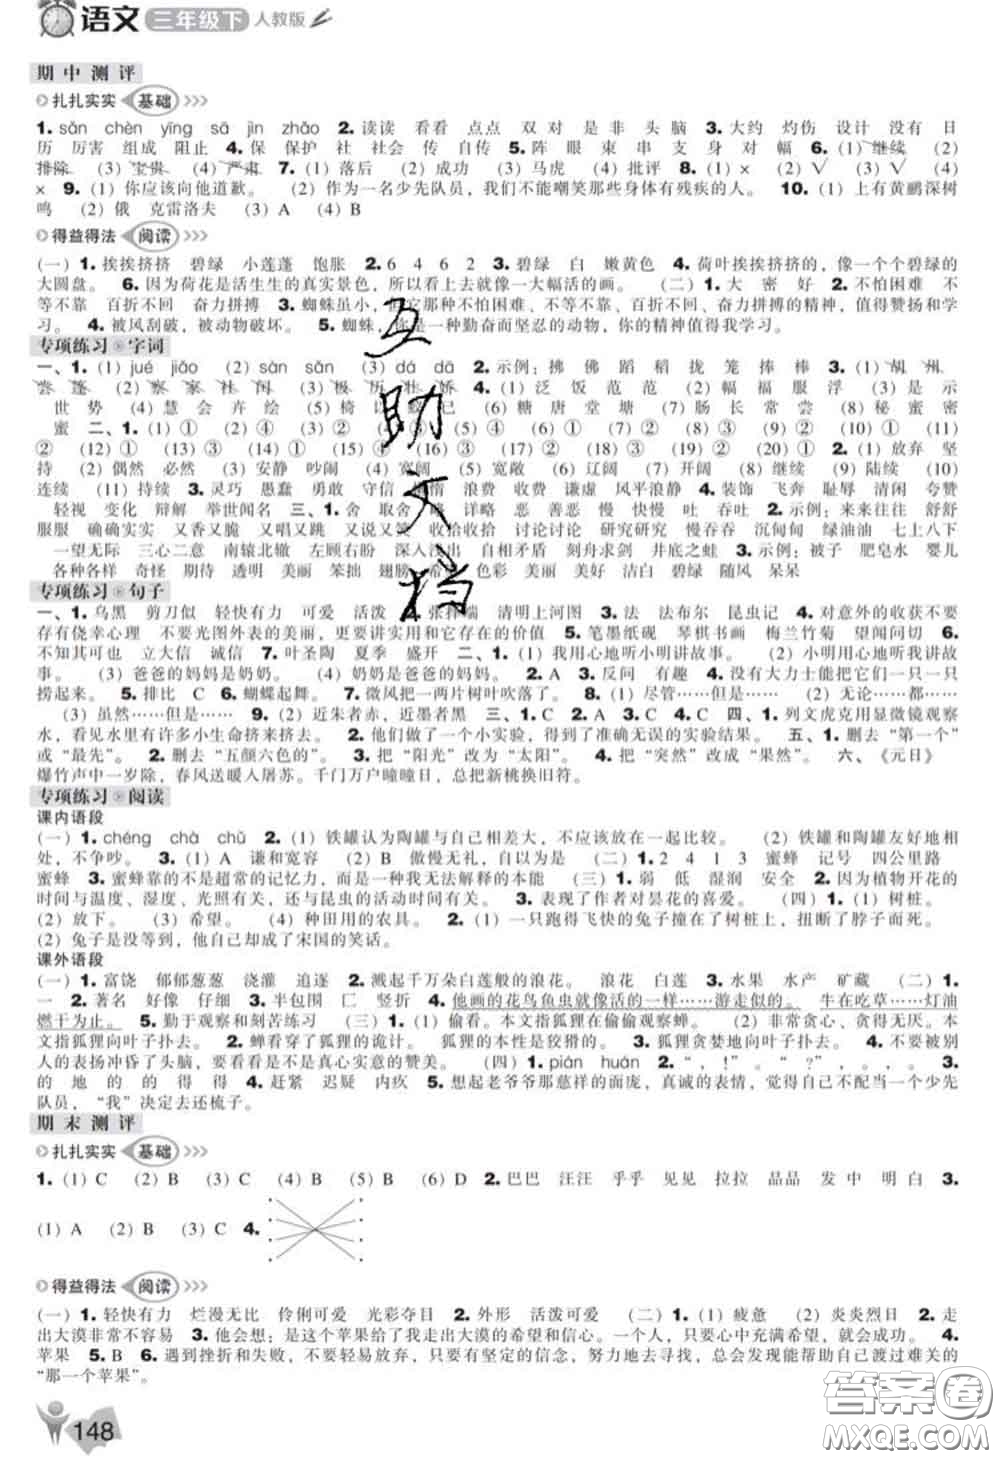 语文 三年级下 人教版
期中测评
扎扎实实 基础
1. sǎn chèn yīng sā jìn zhāo 2. 读读 看看 点点 双 对 是 非 头 脑 3. 大约 灼伤 设计 没有 日
历 厉害 组成 阻止 4. 保 保护 社 社会 传 自传 5. 阵 眼 束 串 支 身 对 幅 6. (1) 继续 (2)
排除 (3) 宝贵 (4) 严肃 7. (1) 落后 (2) 成功 (3) 马虎 (4) 批评 8. (1) × (2) √ (3) √ (4)
× 9. (1) 你应该向他道歉。 (2) 作为一名少先队员，我们不能嘲笑那些身体有残疾的人。 10. (1) 上有黄鹂深树
鸣 (2) 俄 克雷洛夫 (3) A (4) B
得益得法 阅读
(一) 1. 挨挨挤挤 碧绿 小莲蓬 饱胀 2. 6 4 6 2 3. 碧绿 白 嫩黄色 4. 荷叶挨挨挤挤的，像一个个碧绿的
大圆盘。 6. 因为荷花是活生生的真实景色，所以看上去就像一大幅活的画。 (二) 1. 大 密 好 2. 不怕困难 不
等不靠 百折不回 奋力拼搏 3. 蜘蛛虽小，但它那种不怕困难、不等不靠、百折不回、奋力拼搏的精神，值得赞扬和学
习。 4. 被风刮破，被动物破坏。 5. 蜘蛛，你是一种勤奋而坚忍的动物，你的精神值得我学习。
专项练习 字词
一、1. (1) jué jiāo (2) sàn sǎn (3) dá dā 2. 示例：拂 佛 蹈 稻 拢 笼 捧 棒 3. (1) 胡 州
尝 蓬 (2) 察 家 社 闻 (3) 极 历 壮 娇 4. (1) 泛 饭 范 范 (2) 幅 福 服 浮 (3) 是 示
世 势 (4) 慧 会 卉 绘 (5) 椅 以 蚁 已 (6) 糖 唐 堂 塘 (7) 肠 长 常 尝 (8) 秘 蜜 密
蜜 二、1. (1) ① (2) ④ (3) ② (4) ③ (5) ④ (6) ① (7) ② (8) ③ (9) ① (10) ① (11)
② (12) ① (13) ② (14) ② (15) ② (16) ① (17) ② (18) ① (19) ② (20) ① 2. (1) 放弃 坚
持 (2) 偶然 必然 (3) 安静 吵闹 (4) 宽阔 (5) 宽敞 (6) 辽阔 (7) 开阔 (8) 继续 (9) 陆续 (10)
连续 (11) 持续 3. 灵巧 愚蠢 勇敢 守信 懒惰 浪费 收费 谦虚 风平浪静 4. 装饰 飞奔 耻辱 清闲 夸赞
轻视 变化 辩解 举世闻名 三、1. 舍 取舍 略 详略 恶 善恶 慢 快慢 吐 吞吐 2. 示例：来来往往 舒舒
服服 确确实实 又香又脆 又唱又跳 又说又笑 收拾收拾 讨论讨论 研究研究 慢吞吞 沉甸甸 绿油油 七上八下
一望无际 三心二意 南辕北辙 左顾右盼 深入浅出 自相矛盾 刻舟求剑 井底之蛙 3. 示例：被子 肥皂水 婴儿
各种各样 奇怪 期待 透明 美丽 笨拙 翅膀 希望 色彩 美丽 美好 洁白 碧绿 随风 呆呆
专项练习 句子
一、1. 乌黑 剪刀似 轻快有力 可爱 活泼 2. 张择端 清明上河图 3. 法 法布尔 昆虫记 4. 对意外的收获不要
存有侥幸心理 不要光图外表的美丽，更要讲实用和它存在的价值 5. 笔墨纸砚 琴棋书画 梅兰竹菊 望闻问切 6.
不知其可也 立大信 诚信 7. 叶圣陶 夏季 盛开 二、1. (1) 我用心地听小明讲故事。 (2) 小明用心地听我讲故
事。 (3) 爸爸的妈妈是奶奶。 (4) 奶奶是爸爸的妈妈。 2. A 3. 反问 有趣 4. 没有大力士能把它们一只一只
捞起来。 5. 排比 C 6. 蝴蝶起舞。 7. 微风把一两片树叶吹落了。 8. (1) 尽管……但是…… (2) 无论……都……
(3) 虽然……但是…… 9. (2) 近朱者赤，近墨者黑 三、1. C 2. A 3. C 4. C 四、1. 列文虎克用显微镜观察
水，看见水里有许多小生命挤来挤去。 2. 他们做了一个小实验，得到了准确无误的实验结果。 五、1. 删去“第一个”
或“最先”。 2. 删去“五颜六色的”。 3. 把“阳光”改为“太阳”。 4. 把“突然”改成“果然”。 六、《元日》
爆竹声中一岁除，春风送暖入屠苏。千门万户曈曈日，总把新桃换旧符。
专项练习 阅读
课内语段
(一) 1. chéng chà chǔ 2. (1) 铁罐认为陶罐与自己相差大，不应该放在一起比较。 (2) 铁罐和陶罐友好地相
处，不争吵。 3. (1) A 谦和宽容 (2) B 傲慢无礼，自以为是 (二) 1. 2 4 1 3 蜜蜂 记号 四公里路
蜜蜂 3. 蜜蜂靠的不是超常的记忆力，而是一种我无法解释的本能 (三) 1. 弱 低 湿润 安全 2. 因为植物开花的
时间与温度、湿度、光照有关，还与昆虫的活动时间有关。 3. 表现了作者对昙花的喜爱。 (四) 1. (1) 树桩。
(2) 放下。 (3) 希望。 (4) 种田用的农具。 2. (1) 一只跑得飞快的兔子撞在了树桩上，扭断了脖子而死。
(2) 兔子是没等到，他自己却成了宋国的笑话。
课外语段
(一) 1. 富饶 郁郁葱葱 浇灌 追逐 2. 溅起千万朵白莲般的浪花。 浪花 白莲 3. 水果 水产 矿藏 (二) 1.
一 2. 著名 好像 仔细 3. 半包围 匚 竖折 4. 他画的花鸟鱼虫就像活的一样……游走似的。 牛在吃草……灯油
燃干为止。 5. 勤于观察和刻苦练习 (三) 1. (1) 偷看。本文指狐狸在偷偷观察蝉。 (2) 非常贪心、贪得无厌。本
文指狐狸向叶子扑去。 2. 蝉看穿了狐狸的诡计。 狐狸的本性是狡猾的。 3. 狐狸贪婪地向叶子扑去。 4. 不要被别
人的表扬冲昏了头脑，要看看是不是真心实意的赞美。 (四) 1. pián huán 2. “，！” “？”，。 3.
的 地 的 的 得 得 4. 赶紧 迟疑 内疚 5. 想起老爷爷那慈祥的面庞，真诚的表情，觉得自己不配当一个少先
队员，“我”决定去还梳子。
期末测评
扎扎实实 基础
1. (1) C (2) B (3) C (4) B (5) B (6) D 2. 巴巴 汪汪 乎乎 见见 拉拉 晶晶 发 中 明 白 3.
(1) A (2) B (3) C 4.
得益得法 阅读
(一) 1. 轻快有力 烂漫无比 伶俐可爱 光彩夺目 2. 外形 活泼可爱 (二) 1. (1) 疲惫 (2) 炎炎烈日 2. 走
出大漠非常不容易 3. 他会想：是这个苹果给了我走出大漠的希望和信心。一个人，只要心中充满希望，就会成功。 4.
苹果 5. B 6. 遇到挫折和失败，不要轻易放弃，只要有坚定的信念，努力地去寻找，总会发现能帮助自己渡过难关的
“那一个苹果”。
148
互助文档
答案圈
MXQE.COM